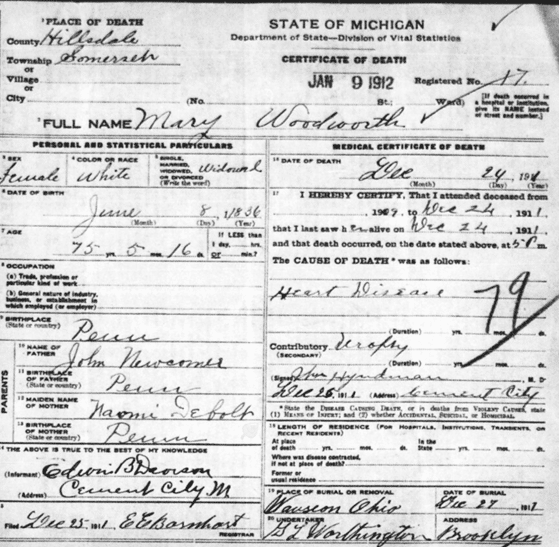 ¹PLACE OF DEATH
County Hillsdale
Township Somerset
or
Village
or
City
STATE OF MICHIGAN
Department of State—Division of Vital Statistics
CERTIFICATE OF DEATH
JAN 9 1912
Registered No. 17
(No. St.; Ward)
[If death occurred in a hospital or institution, give its NAME instead of street and number.]
²FULL NAME Mary Woodworth
PERSONAL AND STATISTICAL PARTICULARS
³SEX
Female
⁴COLOR OR RACE
White
⁵SINGLE, MARRIED, WIDOWED, OR DIVORCED
(Write the word)
Widowed
⁶DATE OF BIRTH
June 8 1836
(Month) (Day) (Year)
⁷AGE
75 yrs. 5 mos. 16 ds.
If LESS than
1 day, hrs.
or min.?
⁸OCCUPATION
(a) Trade, profession or
particular kind of work
(b) General nature of industry,
business, or establishment in
which employed (or employer)
⁹BIRTHPLACE
(State or country)
Penn
PARENTS
¹⁰NAME OF
FATHER
John Newcomer
¹¹BIRTHPLACE
OF FATHER
(State or country)
Penn
¹²MAIDEN NAME
OF MOTHER
Naomi Debolt
¹³BIRTHPLACE
OF MOTHER
(State or country)
Penn
THE ABOVE IS TRUE TO THE BEST OF MY KNOWLEDGE
(Informant) Edwin B
(Address) Cement City M
Filed Dec 25, 1911 E E Barnhart
REGISTRAR
MEDICAL CERTIFICATE OF DEATH
¹⁶DATE OF DEATH
Dec 24, 1911
(Month) (Day) (Year)
¹⁷I HEREBY CERTIFY, That I attended deceased from
1909, to Dec 24, 1911
that I last saw her alive on Dec 24, 1911,
and that death occurred, on the date stated above, at 5 P m.
The CAUSE OF DEATH * was as follows:
Heart Disease
79
(Duration) yrs. mos. ds.
Contributory
(SECONDARY)
(Duration) yrs. mos. ds.
(Signed) Hyndman, M. D.
Dec 25, 1911 (Address) Cement City
* State the DISEASE CAUSING DEATH, or in deaths from VIOLENT CAUSES, state
(1) MEANS OF INJURY; and (2) whether ACCIDENTAL, SUICIDAL, or HOMICIDAL.
LENGTH OF RESIDENCE (FOR HOSPITALS, INSTITUTIONS, TRANSIENTS, OR
RECENT RESIDENTS)
At place
of death yrs. mos. ds.
In the
State yrs. mos. ds.
Where was disease contracted,
if not at place of death?
Former or
usual residence
PLACE OF BURIAL OR REMOVAL
Wauseon Ohio
DATE OF BURIAL
Dec 27 1911
UNDERTAKER
G L Worthington
ADDRESS
Brooklyn